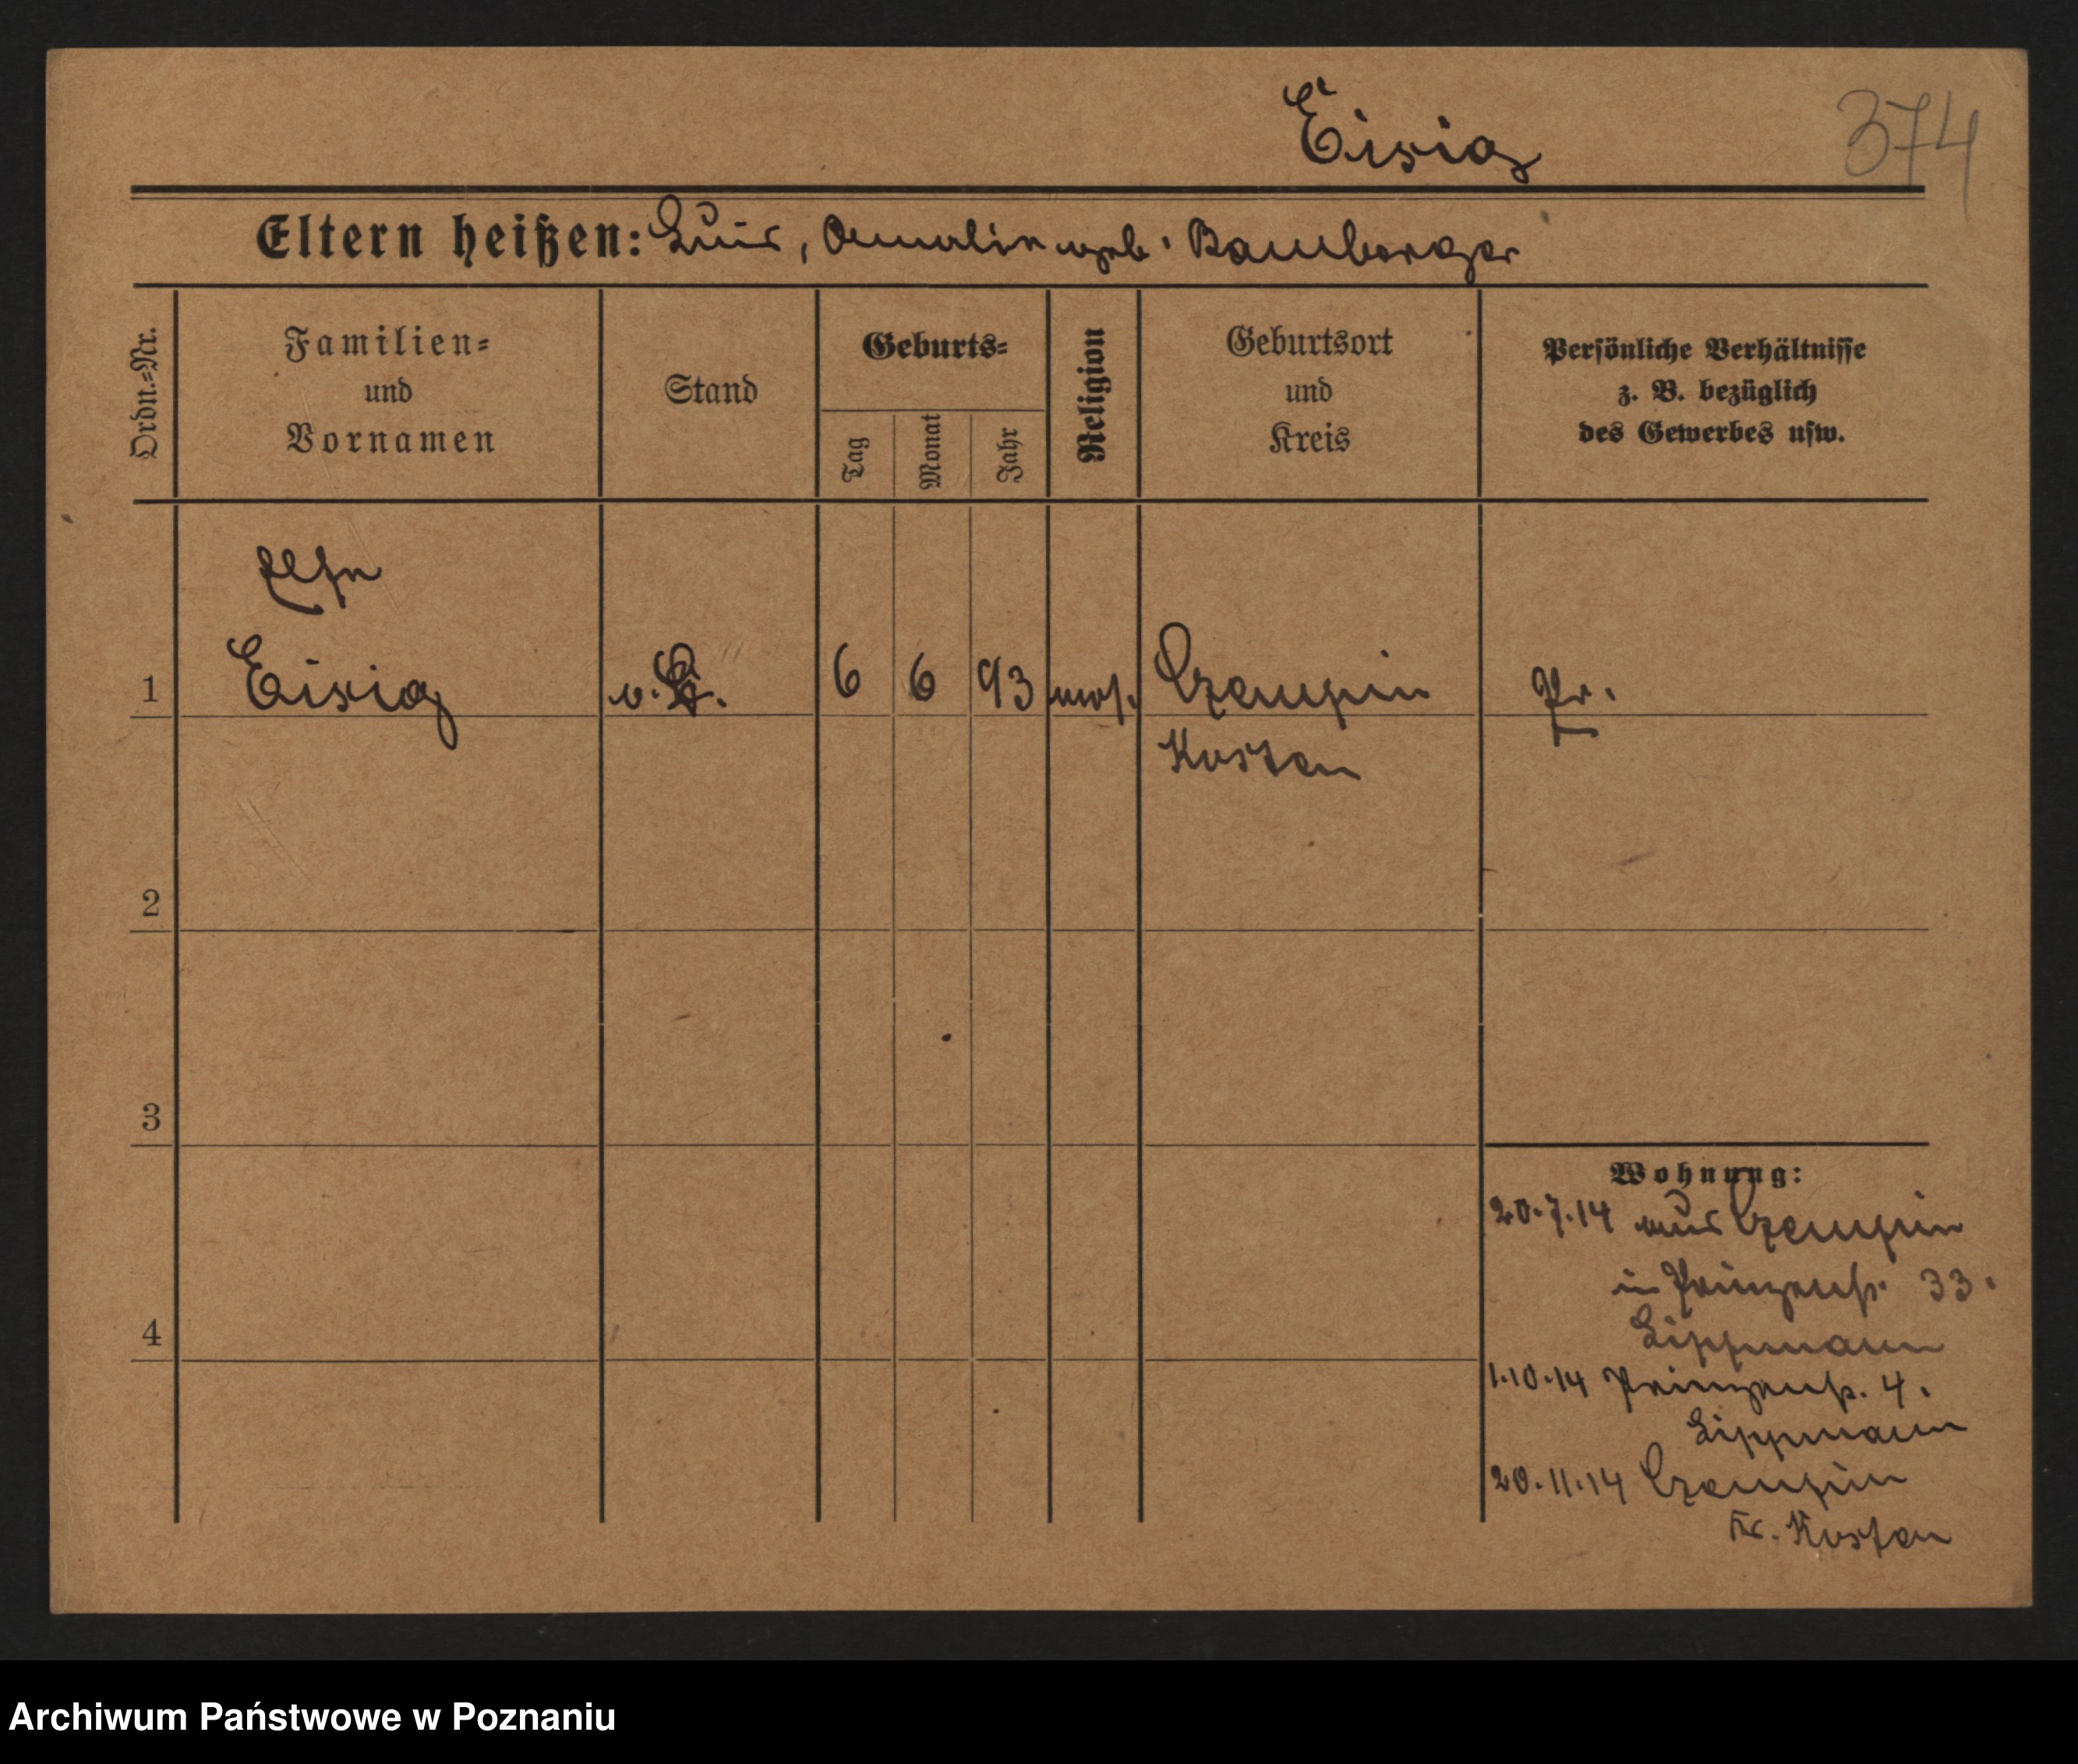 Eisig
374
Eltern heißen: Luis, Amalie geb. Bamberger
Ordn.=Nr.
Familien=
und
Vornamen
Stand
Geburts=
Tag
Monat
Jahr
Religion
Geburtsort
und
Kreis
Persönliche Verhältnisse
z. B. bezüglich
des Gewerbes usw.
1 Eisig 6 6 93 mos. Czempin Pr.
Kosten
2
3
4
Wohnung:
20.7.14 aus Czempin
in Prinzenstr. 33.
Lippmann
1.10.14 Prinzenstr. 4.
Lippmann
20.11.14 Czempin
Kr. Kosten
Archiwum Państwowe w Poznaniu